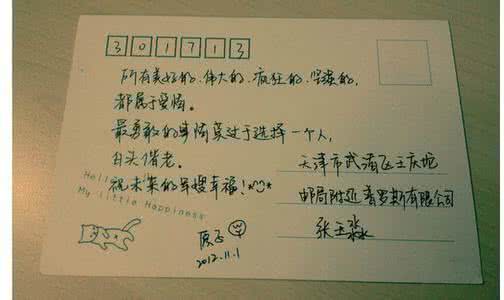 301713
所有美好的、伟大的、疯狂的、
都属于爱情。
最勇敢的事情莫过于选择一个人,
白头偕老。
Hello
祝未来的军嫂幸福!
My Little Happiness
天津市武清区王庆坨
邮局附近普罗斯有限公司
张玉淼
原子
2012.11.1